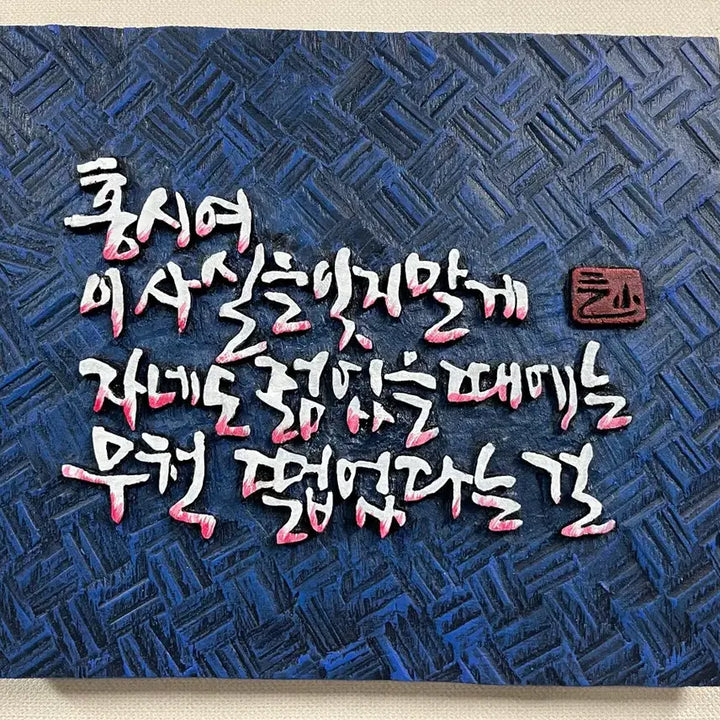 홍시여
이 사실을 잊지말게
자네도 젊었을 때에는
무척 떫었다는 걸